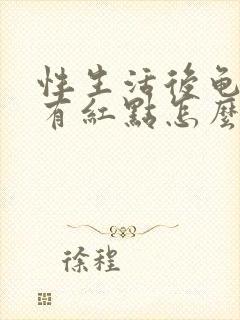 性生活後龟
有紅點怎麼
徐程